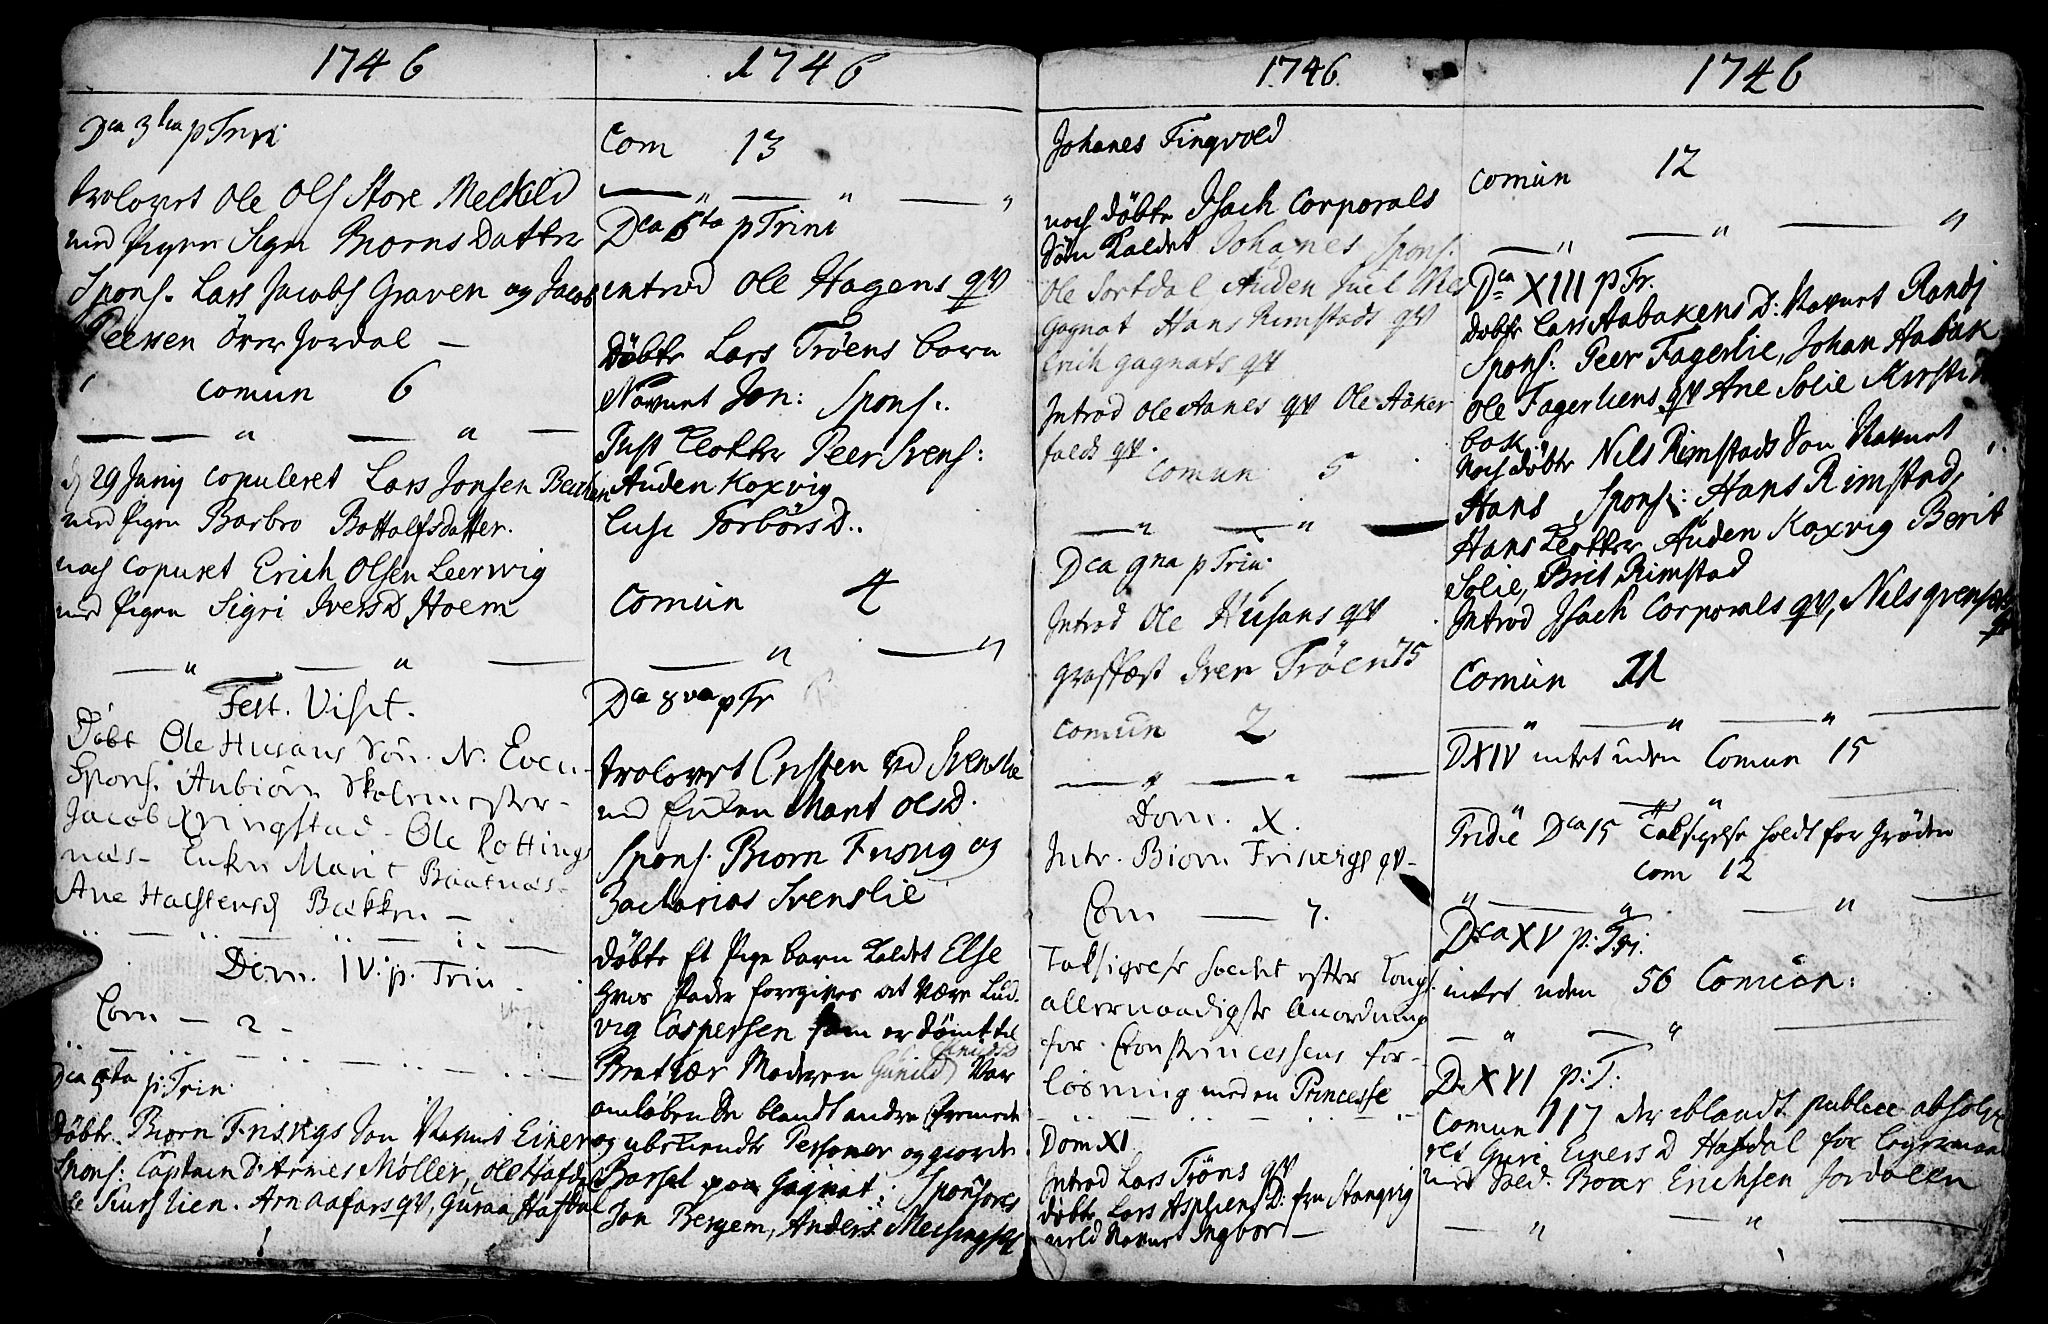 1746
Dca 3tia p Trin:
trolovet Ole Ols Store Melkild
med Pigen Sigri Biorns Datter
Spons. Lars Jacobs Graven og Jacob
Peersen över Jordal —
comun 6
d 29 Junij copuleret Lars Jonsen
med Pigen Barbro Bottolfsdatter.
noch copuleret Erich Olsen Leerwig
med Pigen Sigri IversD, Hoem
Fest. Visit.
Döbt Ole Husans Sön. N. Even
Spons. Anbiörn Skolemester -
Jacob Kringstad - Ole Rotting
næs - Enken Marit Baatnæs -
Ane Halstensd Bækken —
Dom. IV. p. Trin.
Com — 2 -
Dca 5ta p: Trin.
döbte Biorn Frisvigs Sön Navnet Einer
Spons: Captain D'Armes Møller, Ole Hafdal
Siurslien. Arn Aafars qv, Guraa Hafdal
1746
Com 13
Dca 6ta p Trini
introd Ole Hagens qv
Döbte Lars Tröens barn
Navnet Jon: Spons:
Just Klokker Peer Svens:
Auden Koxvig
Lisl Torbörs D..
Comun 4
Dca 8va p Tr
trolovet Cristen vd Svenslie
med Enken Marit Ols D.
Spons. Biorn Fusvig og
Zacharias Svenslie
döbte Et Pige barn kaldet Else
hvis Fader foregives at være Lud
vig Caspersen som er dömt til
Moderen Gunild var
omløbende blandt andre fremede
og ubekiendte Personer og giorde
Barsel paa Gagnat: Sponsores
Jon Bergem, Anders Meisings qv
1746.
Johanes Tingvold
noch döbte Isach Corporals
Sön kaldet Johanes Spons.
Ole Sortdal Auden Juel Nils
Gagnat Hans Rimstads qv
Erich gagnats qv
Introd Ole Aanes qv Ole Aaker
falds qv.
Comun 5
Dca 9na p Trin.
Introd Ole Husans qv
graffæst Iver Tröen 75
comun 2
Dom. X.
Intr. Biorn Frisvigs qv -
Com — 7.
Taksigelse holdet efter Kongl.
allernaadigste Anordning
for Cronprincessens for-
løsning med en Princesse
Dom XI
Introd Lars Tröns qv
döbte Lars Aspliens D: fra Stangvig
Navnet Ingbor —
1746
comun 12
Dca XIII p Tr.
döbte Lars Aabakens D: Navnet Randi
Spons: Peer Fagerlie, Johan Habak
Ole Fagerliens qv Ane Solie Kirsti
bak
Noch döbte Nils Rimstads Sön Navnet
Hans Spons: Hans Rimstad,
Hans Klokker Auden Koxvig Berit
Solie, Brit Rimstad
Introd Isach Corporals qv, Nils
qv
Comun 21
D XIV intet uden Comun 15
Pridie Dca 15 Taksigelse holdt for Grøden
Com 12
Dca XV p: Tri:
intet uden 56 Comun:
D XVI p: T:
Comun 117 der iblandt publice absolve
ret Guri Einers D Hafdal for Leyermaal
med Sold. Roar Erichsen Jordalen